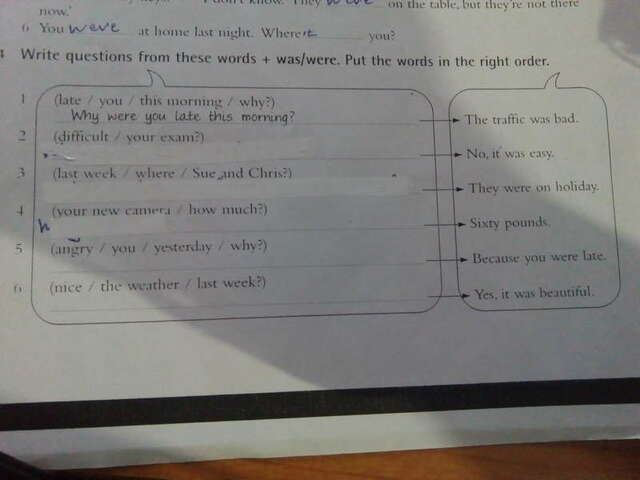 I don't know. They were on the table, but they're not there
now.'
6 You were at home last night. Where you?
Write questions from these words + was/were. Put the words in the right order.
1 (late / you / this morning / why?)
Why were you late this morning? The traffic was bad.
2 (difficult / your exam?)
No, it was easy.
3 (last week / where / Sue and Chris?)
They were on holiday.
4 (your new camera / how much?)
h Sixty pounds.
5 (angry / you / yesterday / why?)
Because you were late.
6 (nice / the weather / last week?)
Yes, it was beautiful.